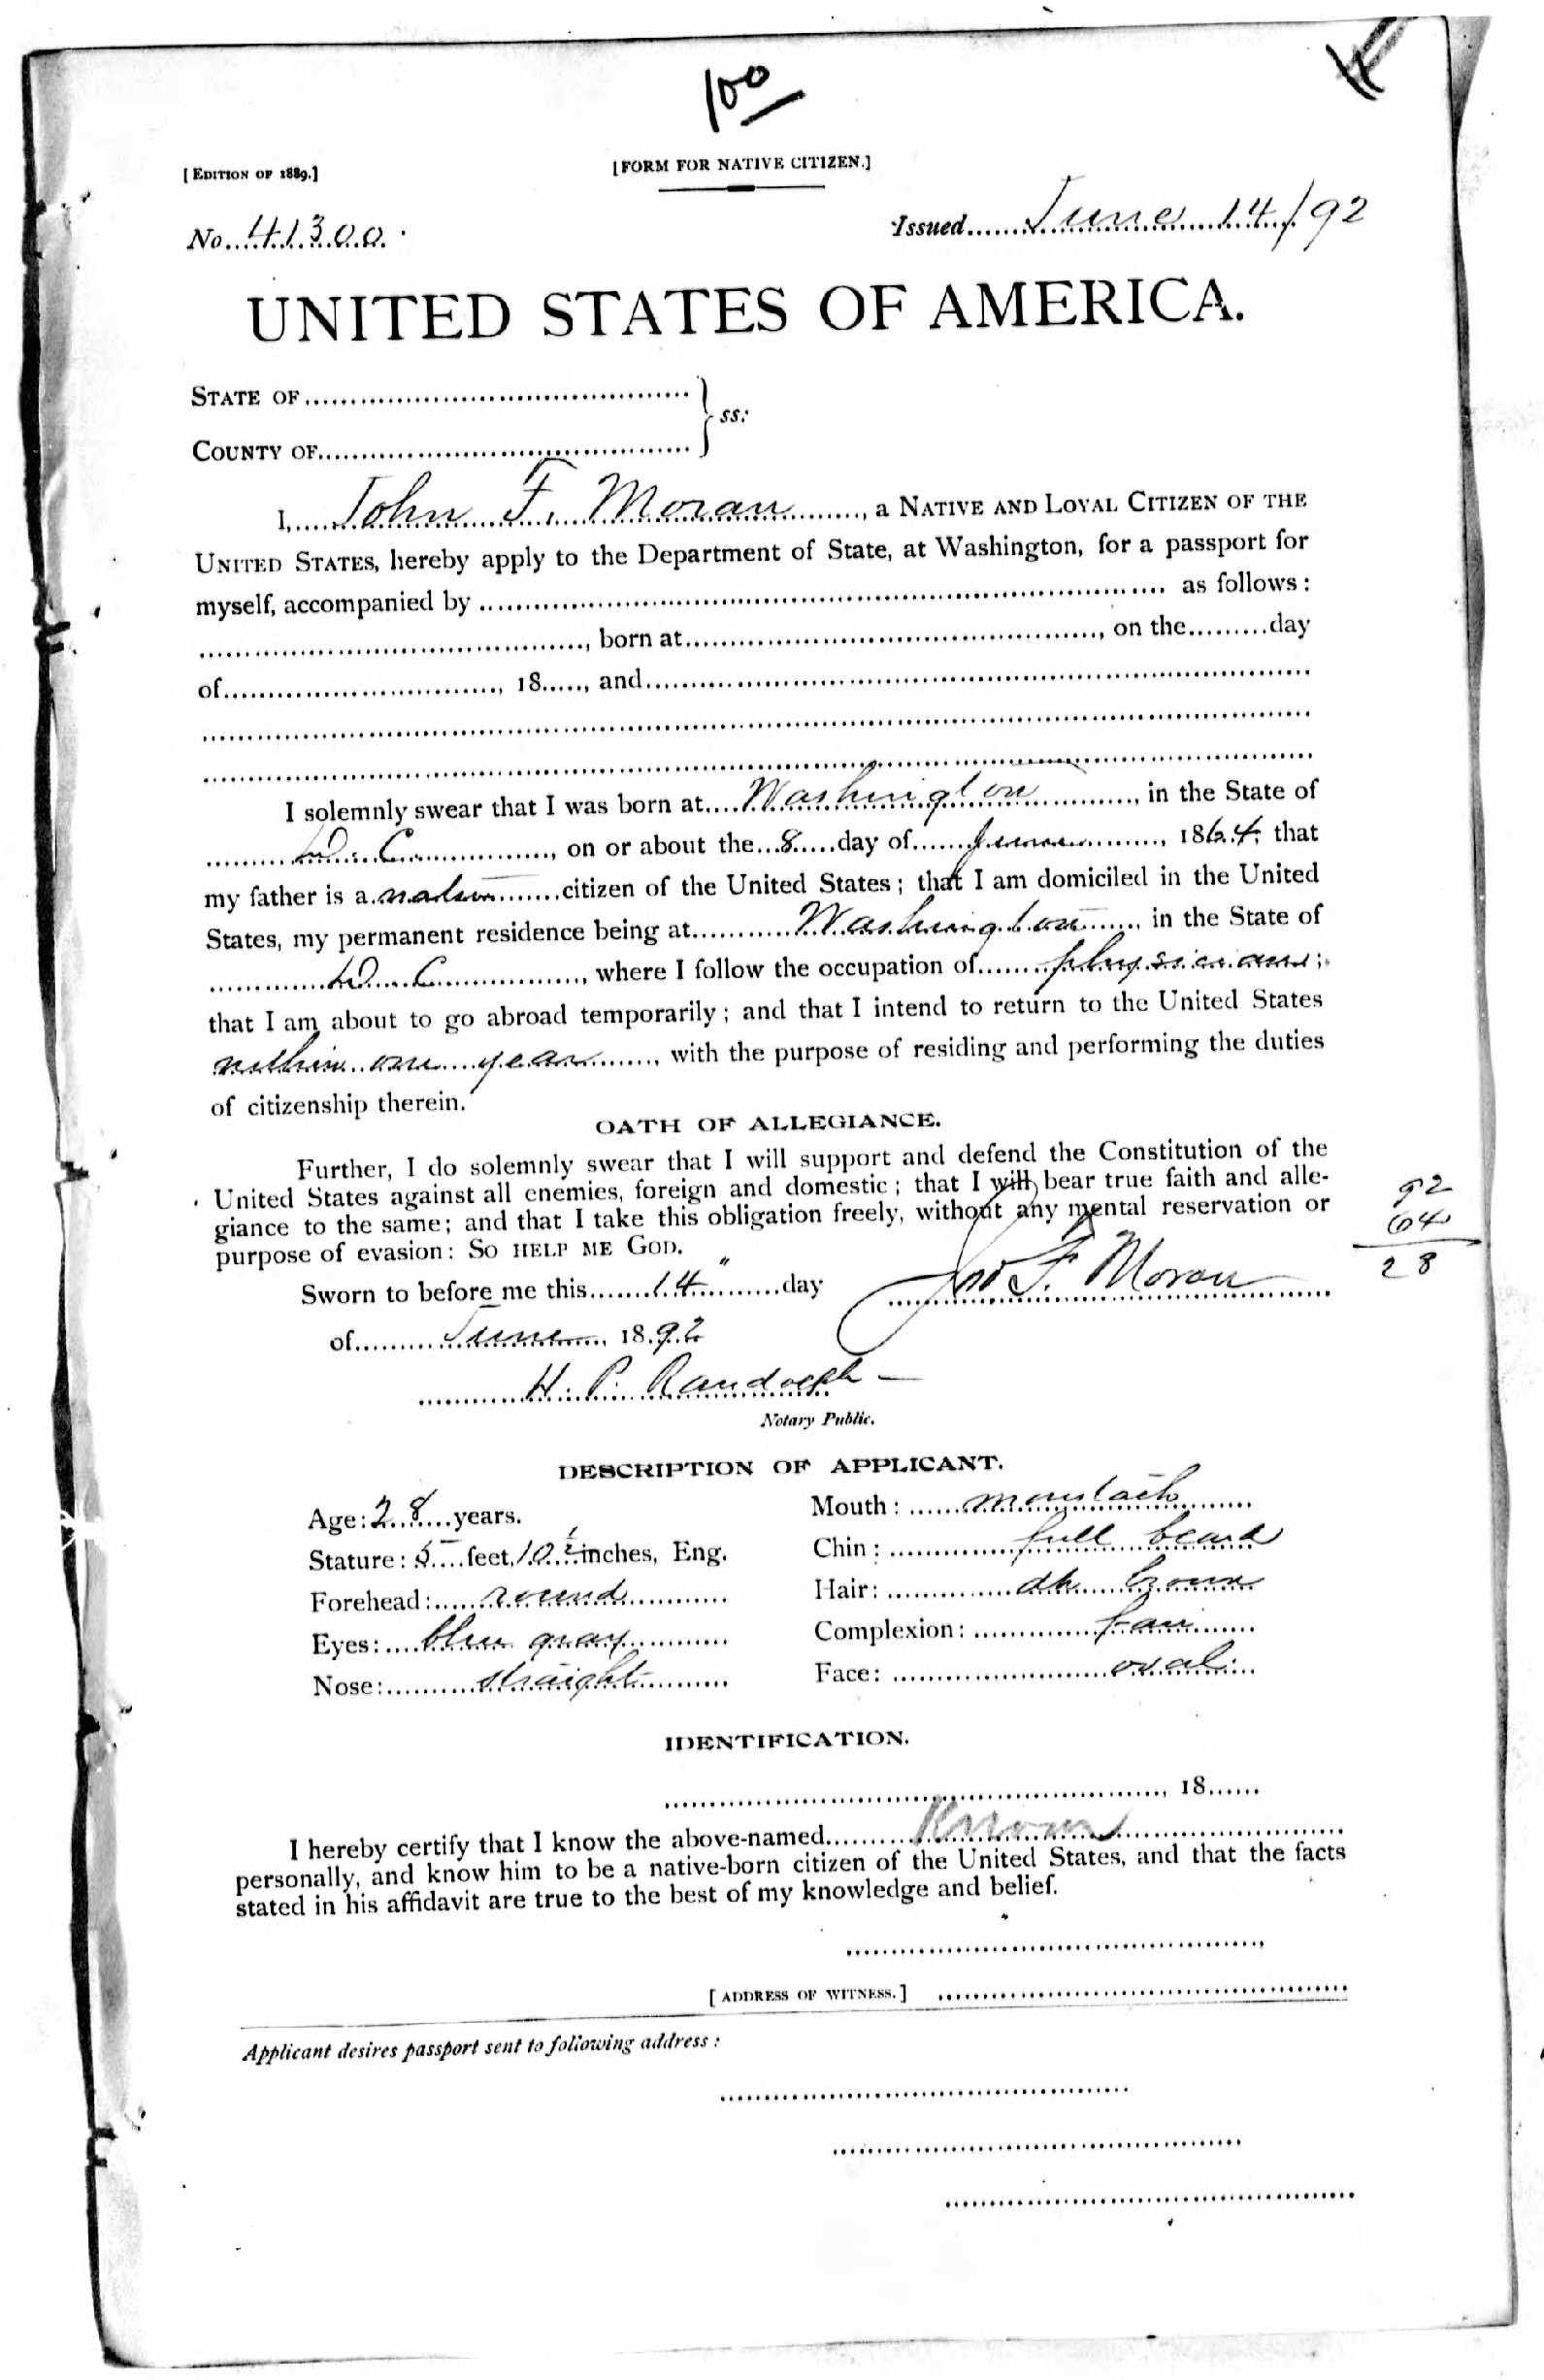 100
[EDITION OF 1889.]
[FORM FOR NATIVE CITIZEN.]
No. 41300.
Issued June 14/92
UNITED STATES OF AMERICA.
STATE OF
COUNTY OF
ss:
I, John F. Moran, a NATIVE AND LOYAL CITIZEN OF THE
UNITED STATES, hereby apply to the Department of State, at Washington, for a passport for
myself, accompanied by as follows:
, born at , on the day
of , 18 , and
I solemnly swear that I was born at Washington, in the State of
D. C., on or about the 8 day of June, 1864; that
my father is a native citizen of the United States; that I am domiciled in the United
States, my permanent residence being at Washington, in the State of
D C, where I follow the occupation of physician;
that I am about to go abroad temporarily; and that I intend to return to the United States
within one year, with the purpose of residing and performing the duties
of citizenship therein.
OATH OF ALLEGIANCE.
Further, I do solemnly swear that I will support and defend the Constitution of the
United States against all enemies, foreign and domestic; that I will bear true faith and alle-
giance to the same; and that I take this obligation freely, without any mental reservation or
purpose of evasion: SO HELP ME GOD.
92
64
28
Sworn to before me this 14" day
Jno F. Moran
of June, 1892
H. P. Randolph
Notary Public.
DESCRIPTION OF APPLICANT.
Age: 28 years.
Mouth: moustach
Stature: 5 feet, 10 1/2 inches, Eng.
Chin: full beard
Forehead: round
Hair: dk brown
Eyes: blue gray
Complexion: fair
Nose: straight
Face: oval
IDENTIFICATION.
, 18
I hereby certify that I know the above-named Known
personally, and know him to be a native-born citizen of the United States, and that the facts
stated in his affidavit are true to the best of my knowledge and belief.
[ADDRESS OF WITNESS.]
Applicant desires passport sent to following address: